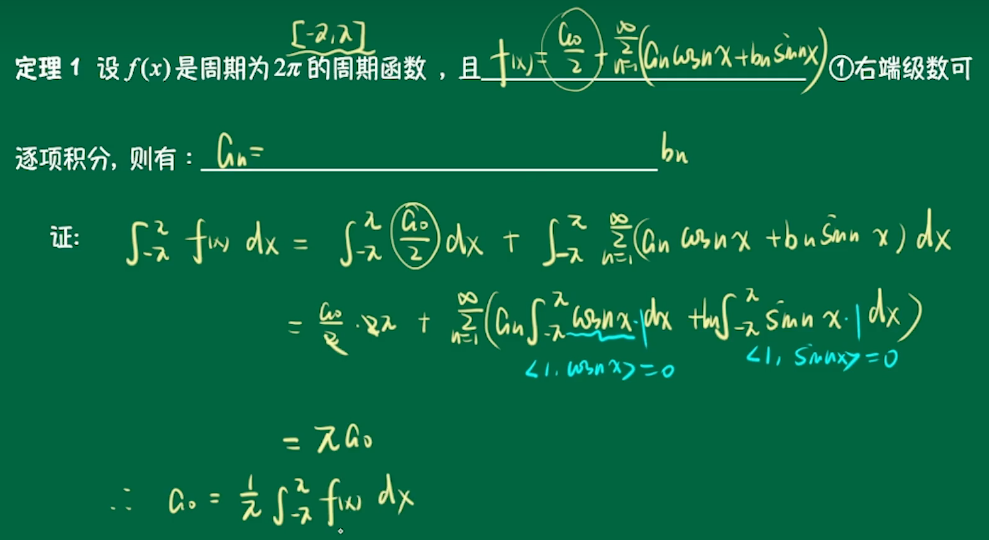 [-π,π]
定理 1 设 f(x) 是周期为 2π 的周期函数，且 f(x) = a₀/2 + ∑_{n=1}^{∞}(aₙ cos nx + bₙ sin nx) ①右端级数可
逐项积分, 则有： aₙ= bₙ
证: ∫_{-π}^{π} f(x) dx = ∫_{-π}^{π} a₀/2 dx + ∫_{-π}^{π} ∑_{n=1}^{∞}(aₙ cos nx + bₙ sin n x) dx
= a₀/2 · 2π + ∑_{n=1}^{∞}(aₙ ∫_{-π}^{π} cos nx·1 dx + bₙ ∫_{-π}^{π} sin n x·1 dx)
<1, cos nx> = 0 <1, sin nx> = 0
= π a₀
∴ a₀ = 1/π ∫_{-π}^{π} f(x) dx